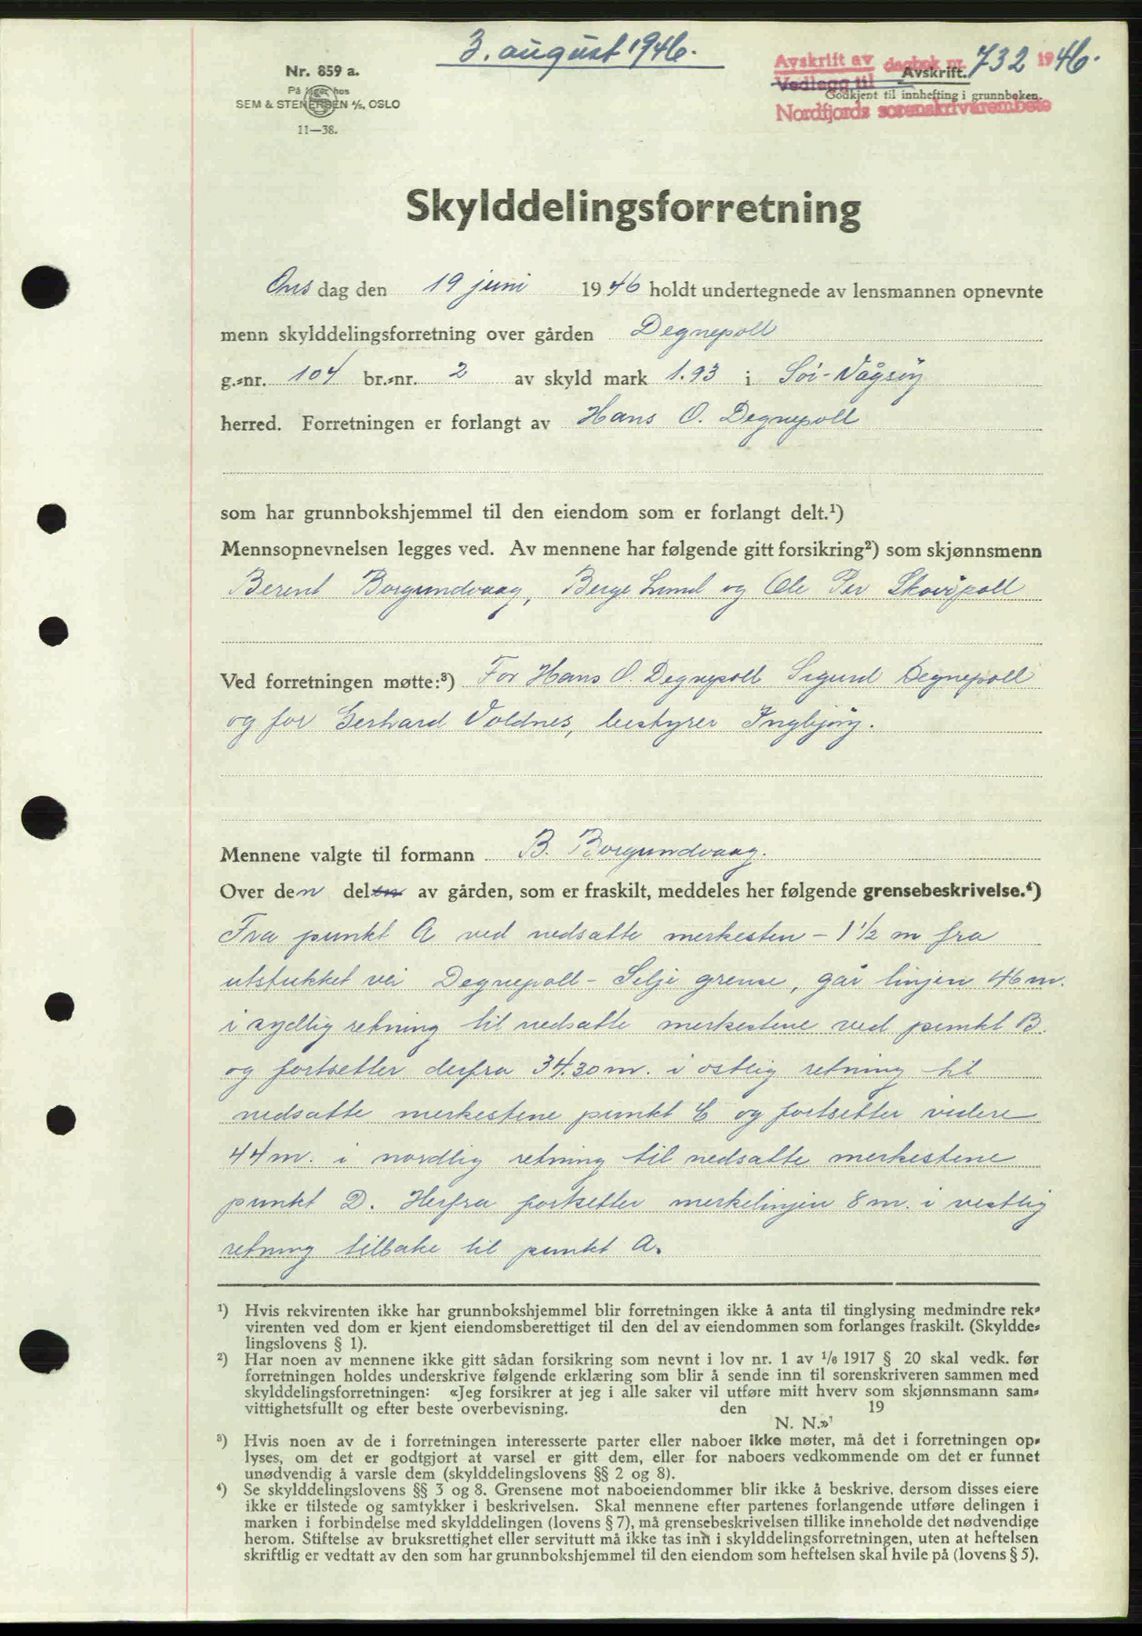 3. august 1946.
Nr. 859 a.
På lager hos
SEM & STENERSEN A/S, OSLO
11—38.
Avskrift av dagbok nr. 732 1946.
Vedlegg til
Avskrift.
Godkjent til innhefting i grunnboken.
Nordfjords sorenskriverembete
Skylddelingsforretning
Ons dag den 19 juni 1946 holdt undertegnede av lensmannen opnevnte
menn skylddelingsforretning over gården Degnepoll
g.-nr. 104 br.-nr. 2 av skyld mark 1.93 i Sör-Vågsöy
herred. Forretningen er forlangt av Hans O. Degnepoll
som har grunnbokshjemmel til den eiendom som er forlangt delt.¹)
Mennsopnevnelsen legges ved. Av mennene har følgende gitt forsikring²) som skjønnsmenn
Berent Borgundvaag, Berge Lund og Ole Per Skavöpoll
Ved forretningen møtte:³) For Hans O. Degnepoll Sigurd Degnepoll
og for Gerhard Voldnes, bestyrer Ingbjörg.
Mennene valgte til formann B. Borgundvaag.
Over den delen av gården, som er fraskilt, meddeles her følgende grensebeskrivelse.⁴)
Fra punkt A ved nedsatte merkesten - 1 1/2 m fra
utstukket vei Degnepoll - Selje grense, går linjen 46 m.
i sydlig retning til nedsatte merkestene ved punkt B.
og fortsetter derfra 34.30 m. i östlig retning til
nedsatte merkestene punkt C og fortsetter videre
44 m. i nordlig retning til nedsatte merkestene
punkt D. Herfra fortsetter merkelinjen 8 m. i vestlig
retning tilbake til punkt A.
¹) Hvis rekvirenten ikke har grunnbokshjemmel blir forretningen ikke å anta til tinglysing medmindre rek-
virenten ved dom er kjent eiendomsberettiget til den del av eiendommen som forlanges fraskilt. (Skyldde-
lingslovens § 1).
²) Har noen av mennene ikke gitt sådan forsikring som nevnt i lov nr. 1 av 1/6 1917 § 20 skal vedk. før
forretningen holdes underskrive følgende erklæring som blir å sende inn til sorenskriveren sammen med
skylddelingsforretningen: «Jeg forsikrer at jeg i alle saker vil utføre mitt hverv som skjønnsmann sam-
vittighetsfullt og efter beste overbevisning. den 19
N. N.»
³) Hvis noen av de i forretningen interesserte parter eller naboer ikke møter, må det i forretningen op-
lyses, om det er godtgjort at varsel er gitt dem, eller for naboers vedkommende om det er funnet
unødvendig å varsle dem (skylddelingslovens §§ 2 og 8).
⁴) Se skylddelingslovens §§ 3 og 8. Grensene mot naboeiendommer blir ikke å beskrive, dersom disses eiere
ikke er tilstede og samtykker i beskrivelsen. Skal mennene efter partenes forlangende utføre delingen i
marken i forbindelse med skylddelingen (lovens § 7), må grensebeskrivelsen tillike inneholde det nødvendige
herom. Stiftelse av bruksrettighet eller servitutt må ikke tas inn i skylddelingsforretningen, uten at heftelsen
skriftlig er vedtatt av den som har grunnbokshjemmel til den eiendom som heftelsen skal hvile på (lovens § 5).